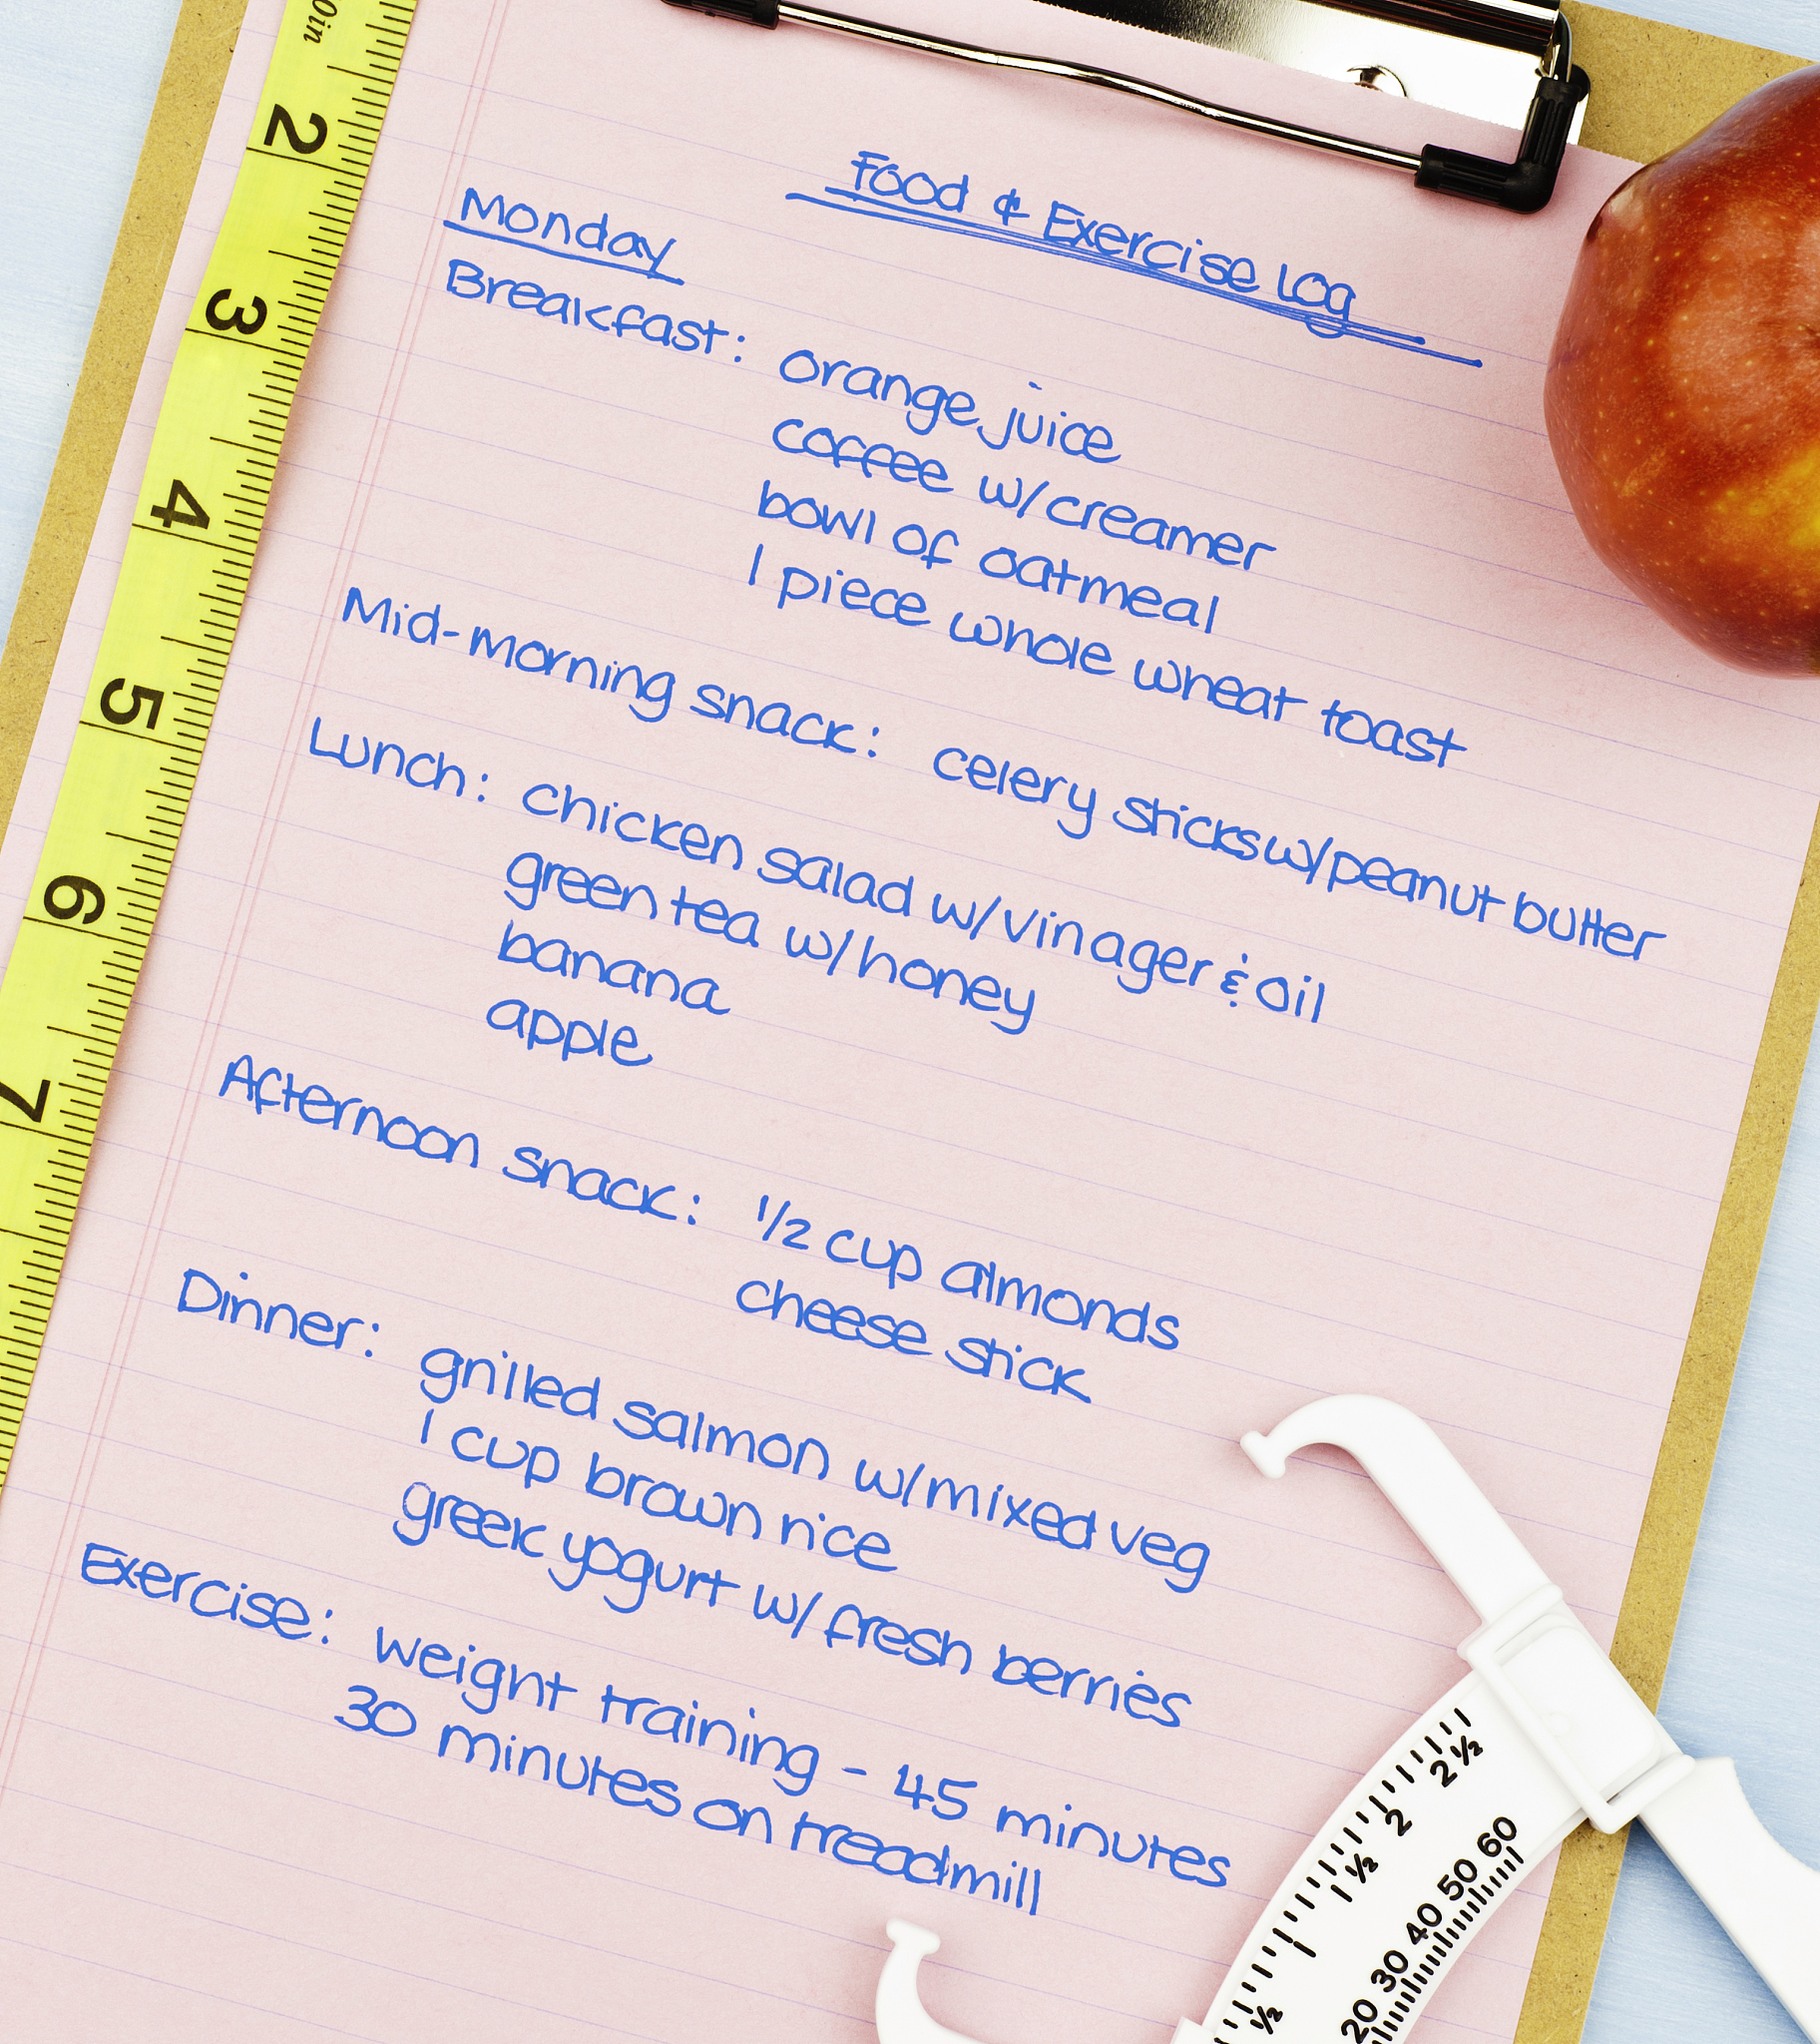 Food & Exercise Log
Monday
Breakfast: orange juice
coffee w/creamer
bowl of oatmeal
1 piece whole wheat toast
Mid-morning snack: celery sticks w/peanut butter
Lunch: chicken salad w/vinager & oil
green tea w/honey
banana
apple
Afternoon snack: 1/2 cup almonds
cheese stick
Dinner: grilled salmon w/mixed veg
1 cup brown rice
greek yogurt w/ fresh berries
Exercise: weight training - 45 minutes
30 minutes on treadmill
0in
2
3
4
5
6
7
½ 1 1½ 2 2½
20 30 40 50 60